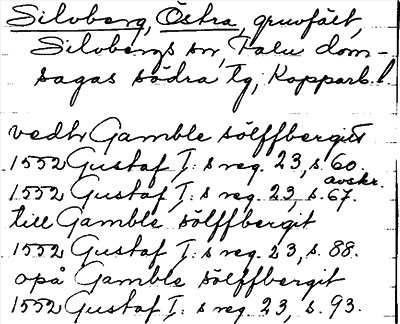 Silvberg, Östra, gruvfält,
Silvbergs sn, Falu dom-
sagas södra tg, Kopparb. l.
vedh Gamble sölffbergitt
1552 Gustaf I:s reg. 23, s. 60.
1552 Gustaf I:s reg. 23, s. 67. avskr.
till Gamble sölffbergit
1552 Gustaf I:s reg. 23, s. 88.
opå Gamble sölffbergit
1552 Gustaf I:s reg. 23, s. 93.